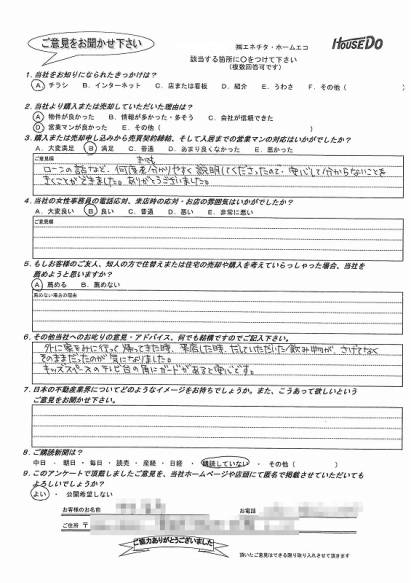 ご意見をお聞かせ下さい
㈱エネチタ・ホームエコ
HOUSEDO
該当する箇所に○をつけて下さい
（複数回答可です）
1．当社をお知りになられたきっかけは？
A．チラシ　B．インターネット　C．店または看板　D．紹介　E．うわさ　F．その他（　　　）
2．当社より購入または売却していただいた理由は？
A．物件が良かった　B．情報が多かった・多そう　C．会社が信頼できた
D．営業マンが良かった　E．その他（　　　）
3．購入または売却申し込みから売買契約締結、そして入居までの営業マンの対応はいかがでしたか？
A．大変満足　B．満足　C．普通　D．あまり良くなかった　E．悪かった
ご意見欄
ローンの話など、何度も分かりやすく説明してくださったので、安心して分からないことを
きくことができました。ありがとうございました。
4．当社の女性事務員の電話応対、来店時の応対・お店の雰囲気はいかがでしたか？
A．大変良い　B．良い　C．普通　D．悪い　E．非常に悪い
ご意見欄
5．もしお客様のご友人、知人の方で住替えまたは住宅の売却や購入を考えていらっしゃった場合、当社を
薦めようと思いますか？
A．薦める　B．薦めない
薦めない場合の理由
6．その他当社へのお叱りの意見・アドバイス、何でも結構ですのでご記入下さい。
外に家をみに行って帰ってきた時、来店した時、だしていただいた飲み物が、さげてなく
そのままだったのが気になりました。
キッズスペースのテレビ台の角にガードがあると安心です。
7．日本の不動産業界についてどのようなイメージをお持ちでしょうか。また、こうあって欲しいという
ご意見をお聞かせ下さい。
8．ご購読新聞は？
中日　・　朝日　・　毎日　・　読売　・　産経　・　日経　・　購読していない　・　その他（　　　）
9．このアンケートで頂戴しましたご意見を、当社ホームページや店頭にて匿名で掲載させていただいても
よろしいでしょうか？
よい　・　公開希望しない
お客様のお名前　お電話
ご住所　〒
ご協力ありがとうございました
頂いたご意見はできる限り取り入れさせて頂きます